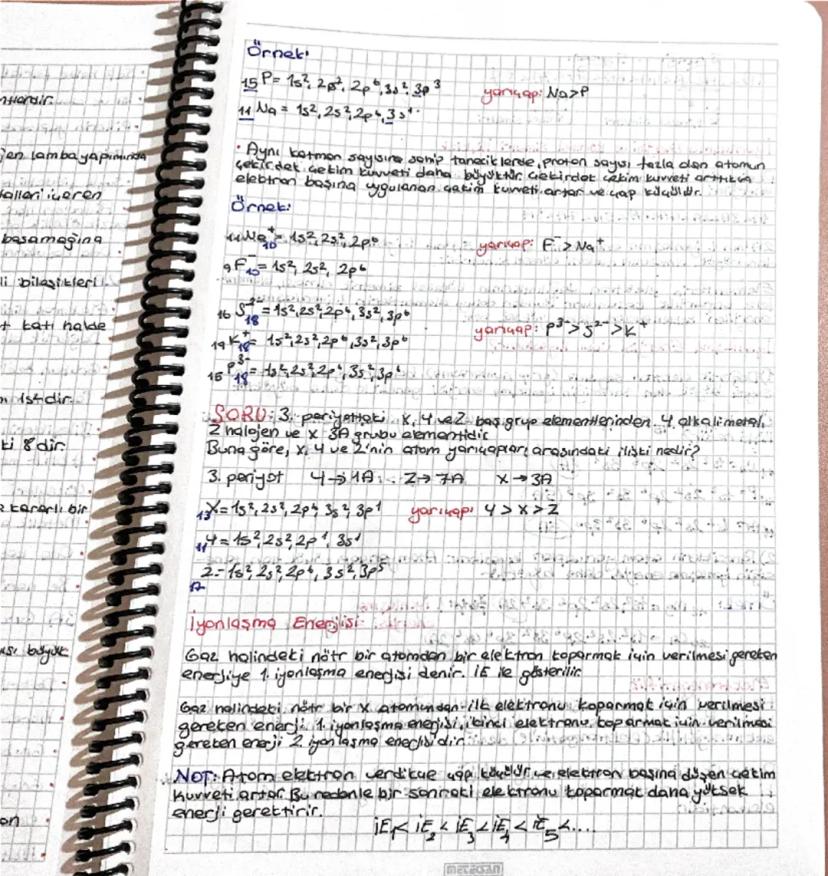 ntlardır.
jen lamba yapımında
talleri içeren
basamağına
li bileşikleri
+ katı halde
n 1s4dir.
ki 8 dir.
e kararlı bir
ası büyük
on
Örnek:
15P = 1s², 2s², 2p⁶, 3s², 3p³ yarıçap: Na>P
11Na = 1s², 2s², 2p⁶, 3s¹
• Aynı katman sayısına sahip taneciklerde, proton sayısı fazla olan atomun
çekirdek çekim kuvveti daha büyüktür. Çekirdek çekim kuvveti arttıkça
elektron başına uygulanan çekim kuvveti artar ve çap küçülür.
Örnek:
11Na⁺10 = 1s², 2s², 2p⁶ yarıçap: F⁻ > Na⁺
9F⁻10 = 1s², 2s², 2p⁶
16S²⁻18 = 1s², 2s², 2p⁶, 3s², 3p⁶
19K⁺18 = 1s², 2s², 2p⁶, 3s², 3p⁶ yarıçap: P³⁻ > S²⁻ > K⁺
15P³⁻18 = 1s², 2s², 2p⁶, 3s², 3p⁶
SORU: 3. periyottaki X, Y ve Z baş grup elementlerinden Y alkali metal,
Z halojen ve X 3A grubu elementidir.
Buna göre, X, Y ve Z'nin atom yarıçapları arasındaki ilişki nedir?
3. periyot Y→1A Z→7A X→3A
13X = 1s², 2s², 2p⁶, 3s², 3p¹ yarıçap: Y > X > Z
11Y = 1s², 2s², 2p⁶, 3s¹
17Z = 1s², 2s², 2p⁶, 3s², 3p⁵
İyonlaşma Enerjisi:
Gaz halindeki nötr bir atomdan bir elektron koparmak için verilmesi gereken
enerjiye 1. iyonlaşma enerjisi denir. İE ile gösterilir.
Gaz halindeki nötr bir X atomundan ilk elektronu koparmak için verilmesi
gereken enerji 1. iyonlaşma enerjisi, ikinci elektronu koparmak için verilmesi
gereken enerji 2. iyonlaşma enerjisidir.
NOT: Atom elektron verdikçe çap küçülür ve elektron başına düşen çekim
kuvveti artar. Bu nedenle bir sonraki elektronu koparmak daha yüksek
enerji gerektirir.
İE₁ < İE₂ < İE₃ < İE₄ < İE₅ < ....